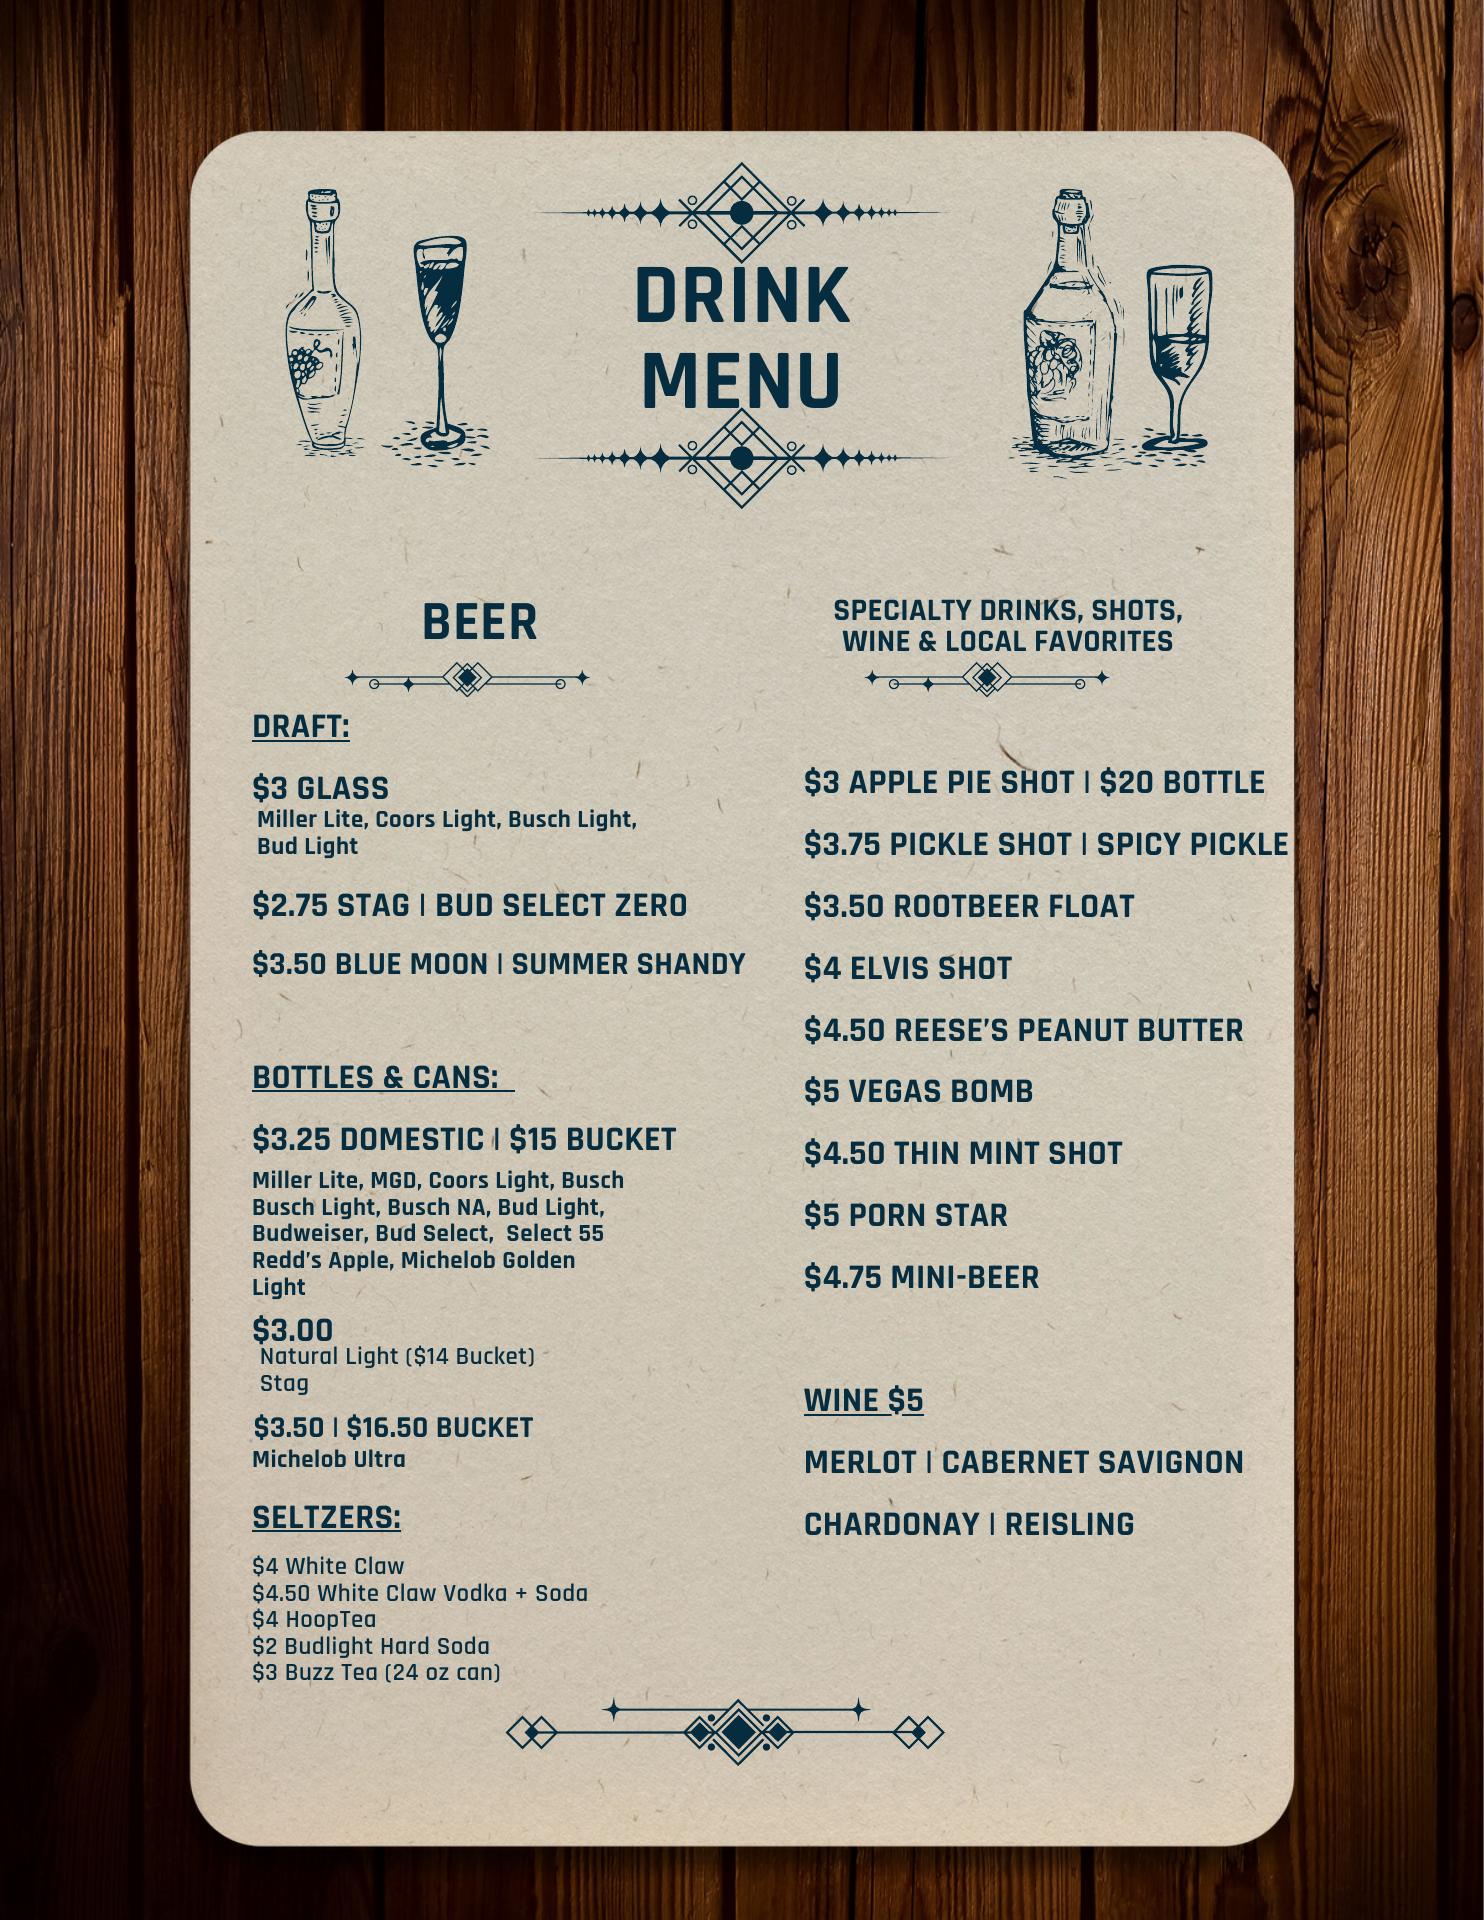 DRINK
MENU
BEER
DRAFT:
$3 GLASS
Miller Lite, Coors Light, Busch Light,
Bud Light
$2.75 STAG | BUD SELECT ZERO
$3.50 BLUE MOON | SUMMER SHANDY
BOTTLES & CANS:
$3.25 DOMESTIC | $15 BUCKET
Miller Lite, MGD, Coors Light, Busch
Busch Light, Busch NA, Bud Light,
Budweiser, Bud Select,  Select 55
Redd's Apple, Michelob Golden
Light
$3.00
Natural Light ($14 Bucket)
Stag
$3.50 | $16.50 BUCKET
Michelob Ultra
SELTZERS:
$4 White Claw
$4.50 White Claw Vodka + Soda
$4 HoopTea
$2 Budlight Hard Soda
$3 Buzz Tea (24 oz can)
SPECIALTY DRINKS, SHOTS,
WINE & LOCAL FAVORITES
$3 APPLE PIE SHOT | $20 BOTTLE
$3.75 PICKLE SHOT | SPICY PICKLE
$3.50 ROOTBEER FLOAT
$4 ELVIS SHOT
$4.50 REESE'S PEANUT BUTTER
$5 VEGAS BOMB
$4.50 THIN MINT SHOT
$5 PORN STAR
$4.75 MINI-BEER
WINE $5
MERLOT | CABERNET SAVIGNON
CHARDONAY | REISLING